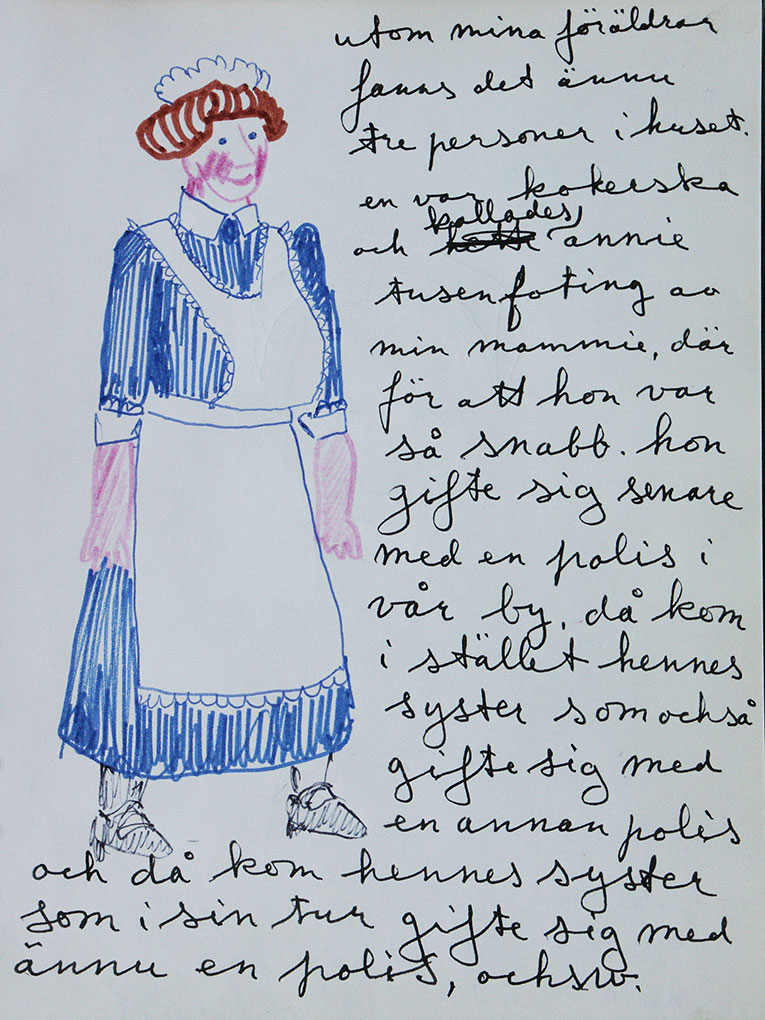 utom mina föräldrar
fanns det ännu
tre personer i huset.
en var kokerska
och kallades, annie
tusenfoting av
min mammie, där
för att hon var
så snabb. hon
gifte sig senare
med en polis i
vår by, då kom
i stället hennes
syster som ochså
gifte sig med
en annan polis
och då kom hennes syster
som i sin tur gifte sig med
ännu en polis, ochsv.